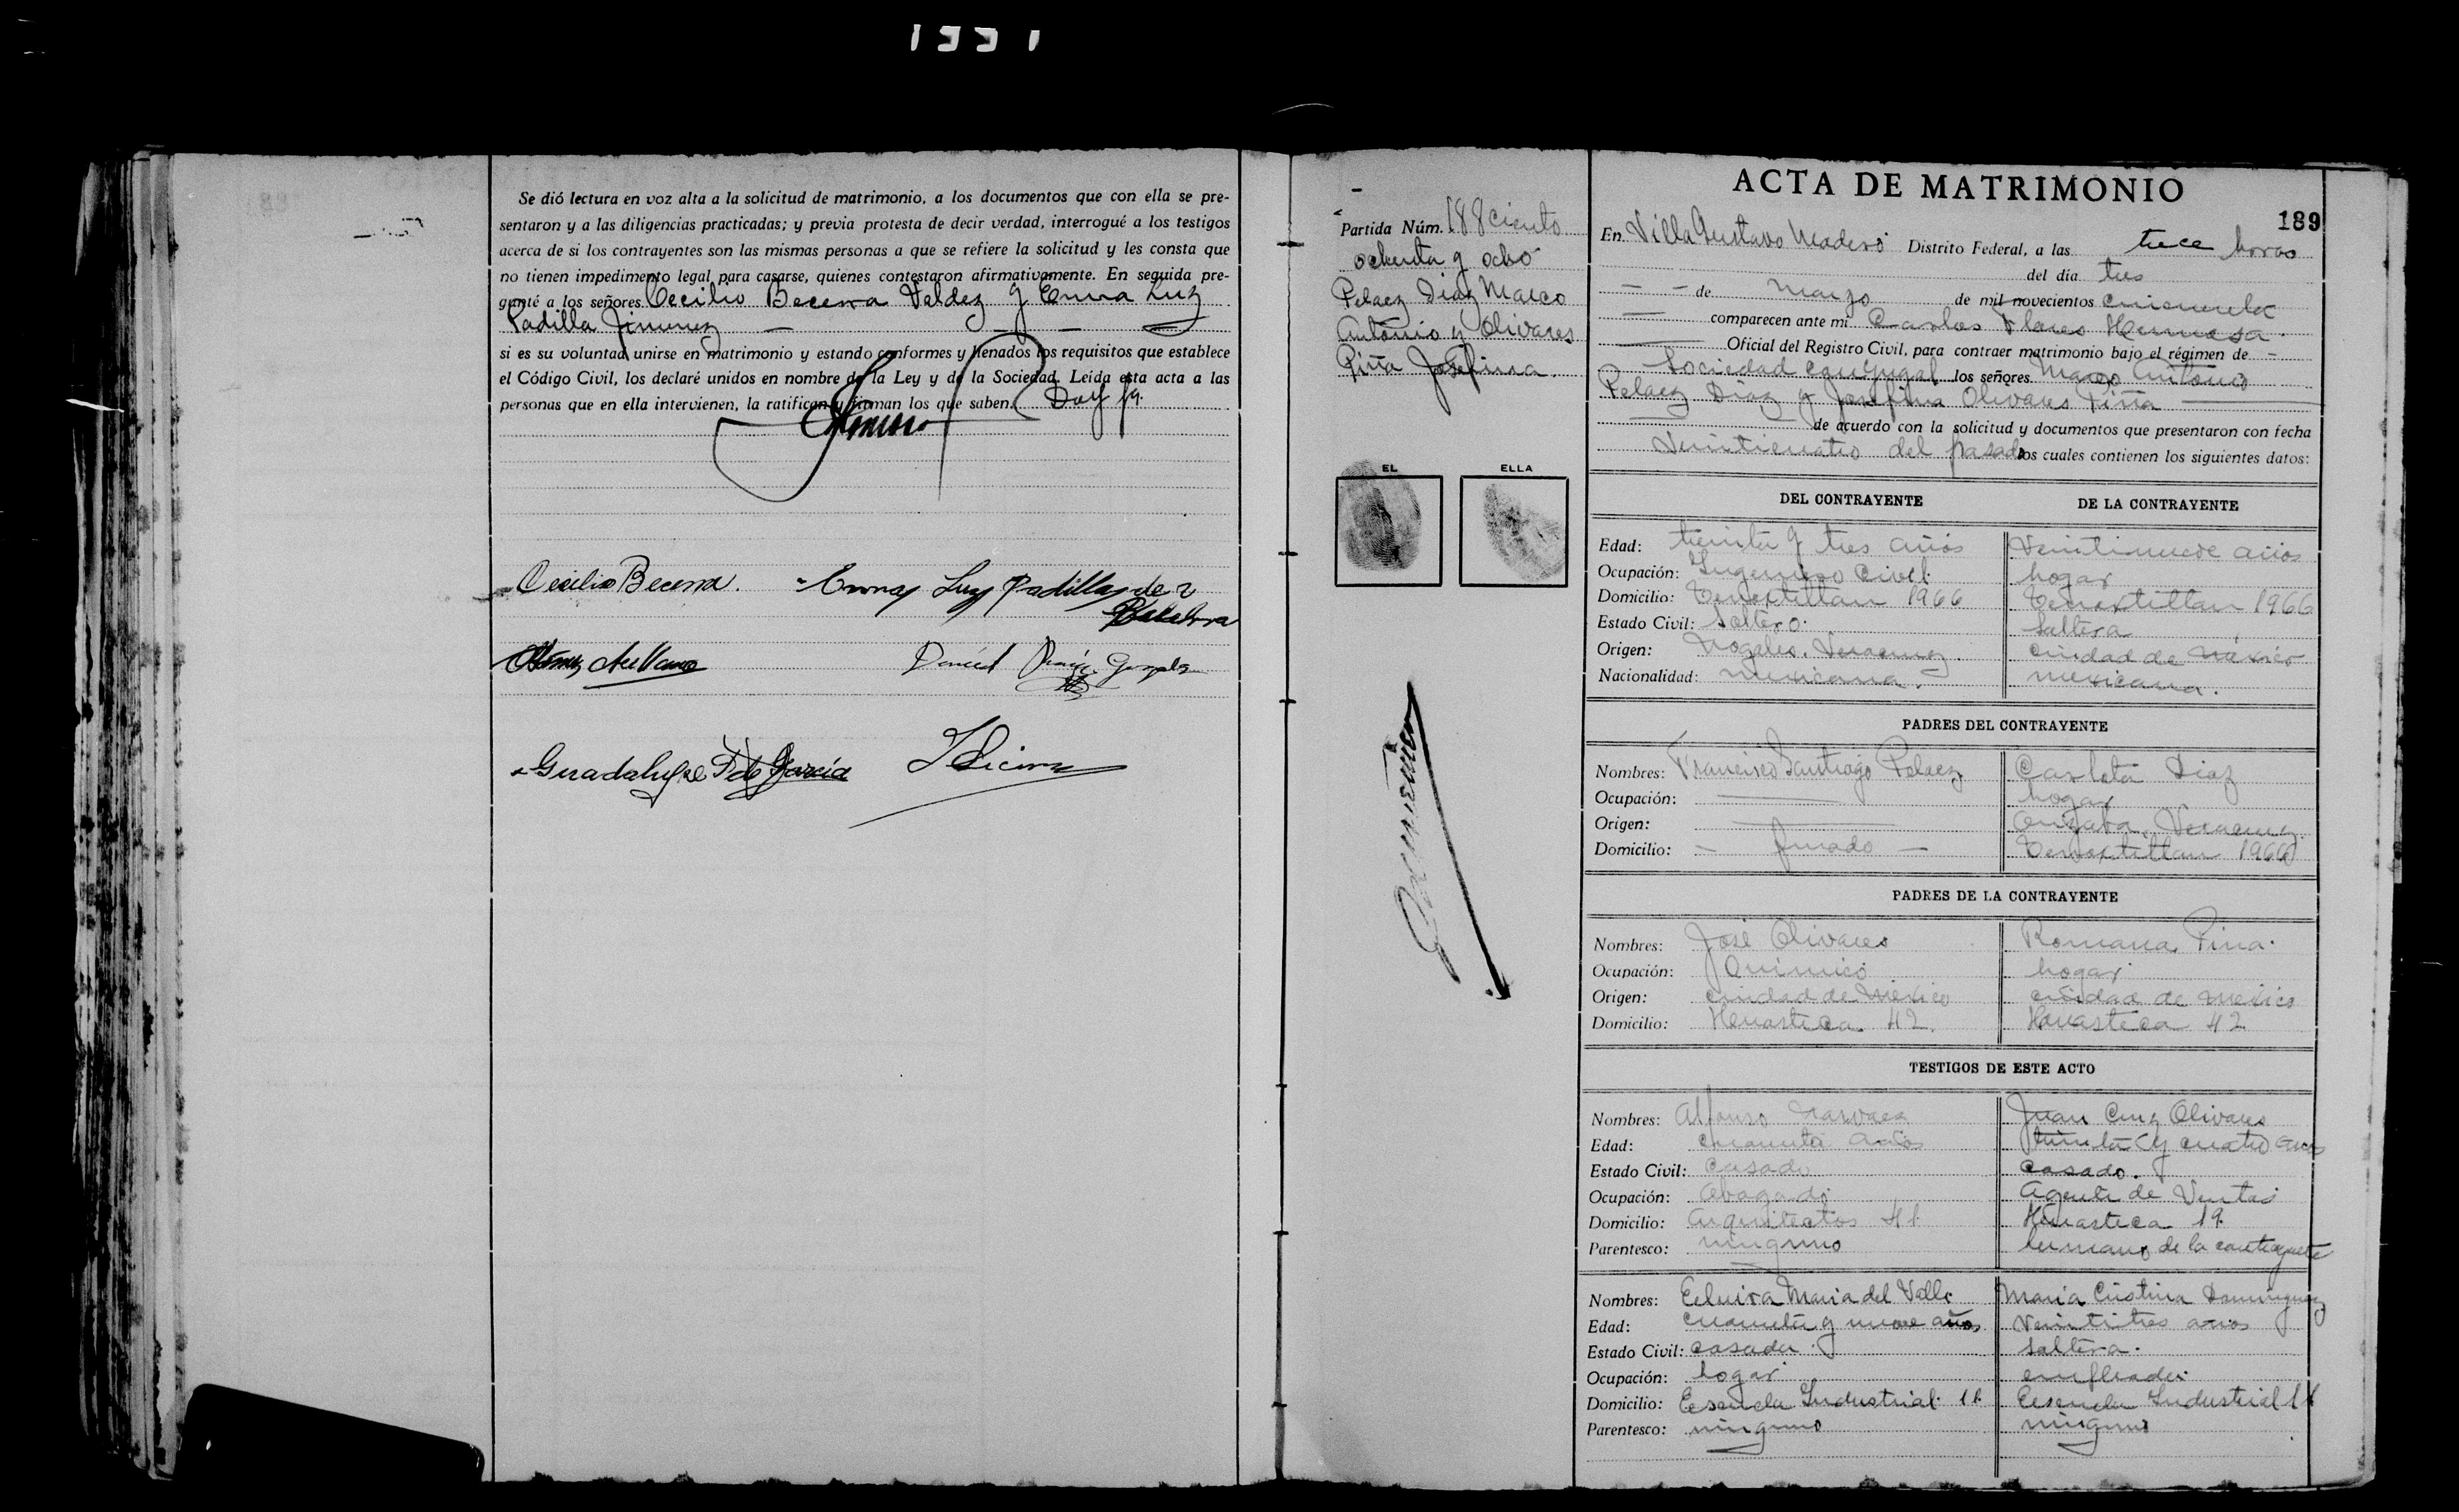 1331
Se dió lectura en voz alta a la solicitud de matrimonio, a los documentos que con ella se pre-
sentaron y a las diligencias practicadas; y previa protesta de decir verdad, interrogué a los testigos
acerca de si los contrayentes son las mismas personas a que se refiere la solicitud y les consta que
no tienen impedimento legal para casarse, quienes contestaron afirmativamente. En seguida pre-
gunté a los señores Cecilio Becerra Valdez y Emma Luz
Padilla Jimenez
si es su voluntad unirse en matrimonio y estando conformes y llenados los requisitos que establece
el Código Civil, los declaré unidos en nombre de la Ley y de la Sociedad. Leída esta acta a las
personas que en ella intervienen, la ratifican y firman los que saben. Doy fé.
Cecilio Becerra. Emma Luz Padilla de
Becerra
Arellano Daniel González
Guadalupe F. de García
Partida Núm. 188 Ciento
ochenta y ocho
Pelaez Diaz Marco
Antonio y Olivares
Piña Josefina.
EL ELLA
ACTA DE MATRIMONIO
189
En Villa Gustavo Madero Distrito Federal, a las trece horas
del día tres
de marzo de mil novecientos cincuenta
comparecen ante mi Carlos Flores Hermosa
Oficial del Registro Civil, para contraer matrimonio bajo el régimen de
Sociedad conyugal los señores Marco Antonio
Pelaez Diaz y Josefina Olivares Piña
de acuerdo con la solicitud y documentos que presentaron con fecha
veinticuatro del pasado los cuales contienen los siguientes datos:
DEL CONTRAYENTE DE LA CONTRAYENTE
Edad: treinta y tres años veintinueve años
Ocupación: Ingeniero Civil. hogar
Domicilio: Tenoxtitlan 1966 Tenoxtitlan 1966
Estado Civil: soltero. soltera
Origen: Nogales. Veracruz. ciudad de México
Nacionalidad: mexicana. mexicana.
PADRES DEL CONTRAYENTE
Nombres: Francisco Santiago Pelaez Carlota Diaz
Ocupación: hogar
Origen: Orizaba, Veracruz.
Domicilio: finado Tenoxtitlan 1966
PADRES DE LA CONTRAYENTE
Nombres: José Olivares Romana Pina.
Ocupación: Quimico hogar
Origen: ciudad de Mexico ciudad de Mexico
Domicilio: Huasteca 42. Huasteca 42
TESTIGOS DE ESTE ACTO
Nombres: Alfonso Narvaez Juan Cruz Olivares
Edad: cuarenta años treinta y cuatro años
Estado Civil: casado casado.
Ocupación: Abogado Agente de Ventas
Domicilio: Arquitectos 41. Huasteca 19.
Parentesco: ninguno hermano de la contrayente
Nombres: Elvira Maria del Valle Maria Cristina Dominguez
Edad: cuarenta y nueve años veintitres años
Estado Civil: casada. soltera.
Ocupación: hogar empleada
Domicilio: Escuela Industrial 11. Escuela Industrial 11
Parentesco: ninguno ninguno